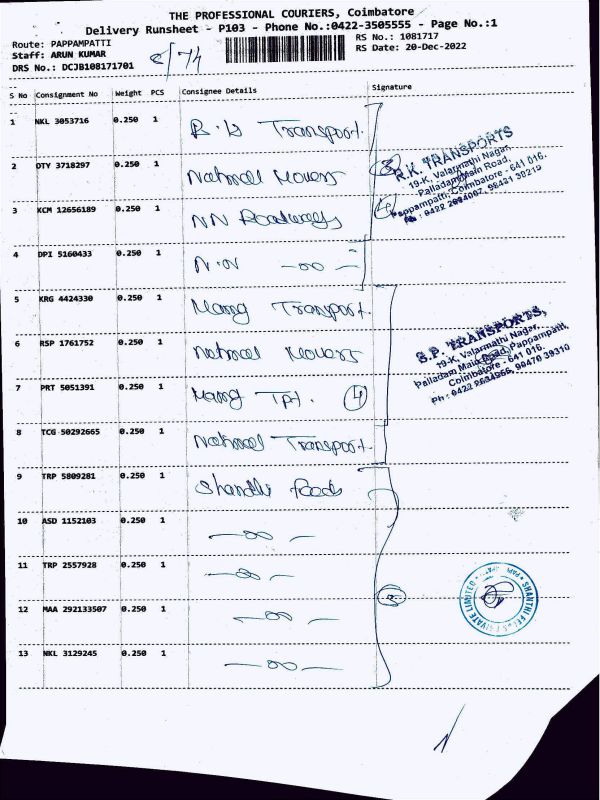 THE PROFESSIONAL COURIERS, Coimbatore
Delivery Runsheet - P103 - Phone No.:0422-3505555 - Page No.:1
Route: PAPPAMPATTI
RS No.: 1081717
Staff: ARUN KUMAR
RS Date: 20-Dec-2022
DRS No.: DCJB108171701
S No Consignment No Weight PCS Consignee Details Signature
1 NKL 3053716 0.250 1 R.K Transport.
2 DTY 3718297 0.250 1 National Movers
3 KCM 12656189 0.250 1 NN Roadways
4 DPI 5160433 0.250 1 N.N
5 KRG 4424330 0.250 1 Transport.
6 RSP 1761752 0.250 1 National Movers
7 PRT 5051391 0.250 1 Tpt. 4
8 TCG 50292665 0.250 1 National Transport.
9 TRP 5809281 0.250 1 Shandhi Foods
10 ASD 1152103 0.250 1
11 TRP 2557928 0.250 1
12 MAA 292133507 0.250 1
13 NKL 3129245 0.250 1
R.K. TRANSPORTS
19-K, Valarmathi Nagar,
Palladam Main Road,
Pappampatti, Coimbatore - 641 016.
S.P. TRANSPORTS,
19-K, Valarmathi Nagar,
Palladam Main Road, Pappampatti,
Coimbatore - 641 016.
SHANTHI FEEDS PRIVATE LIMITED